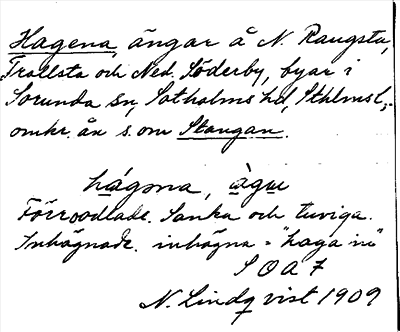 Hagena, ängar å N. Rangsta,
Trollsta och Ned. Söderby, byar i
Sorunda sn, Sotholms hd, Sthlms l.,
omkr. ån s. om Stangan.
hágəna, àgɯ
Förrodlade. Sanka och tuviga.
Inhägnade. inhägna = "haga in"
S O A 7
N. Lindqvist 1909